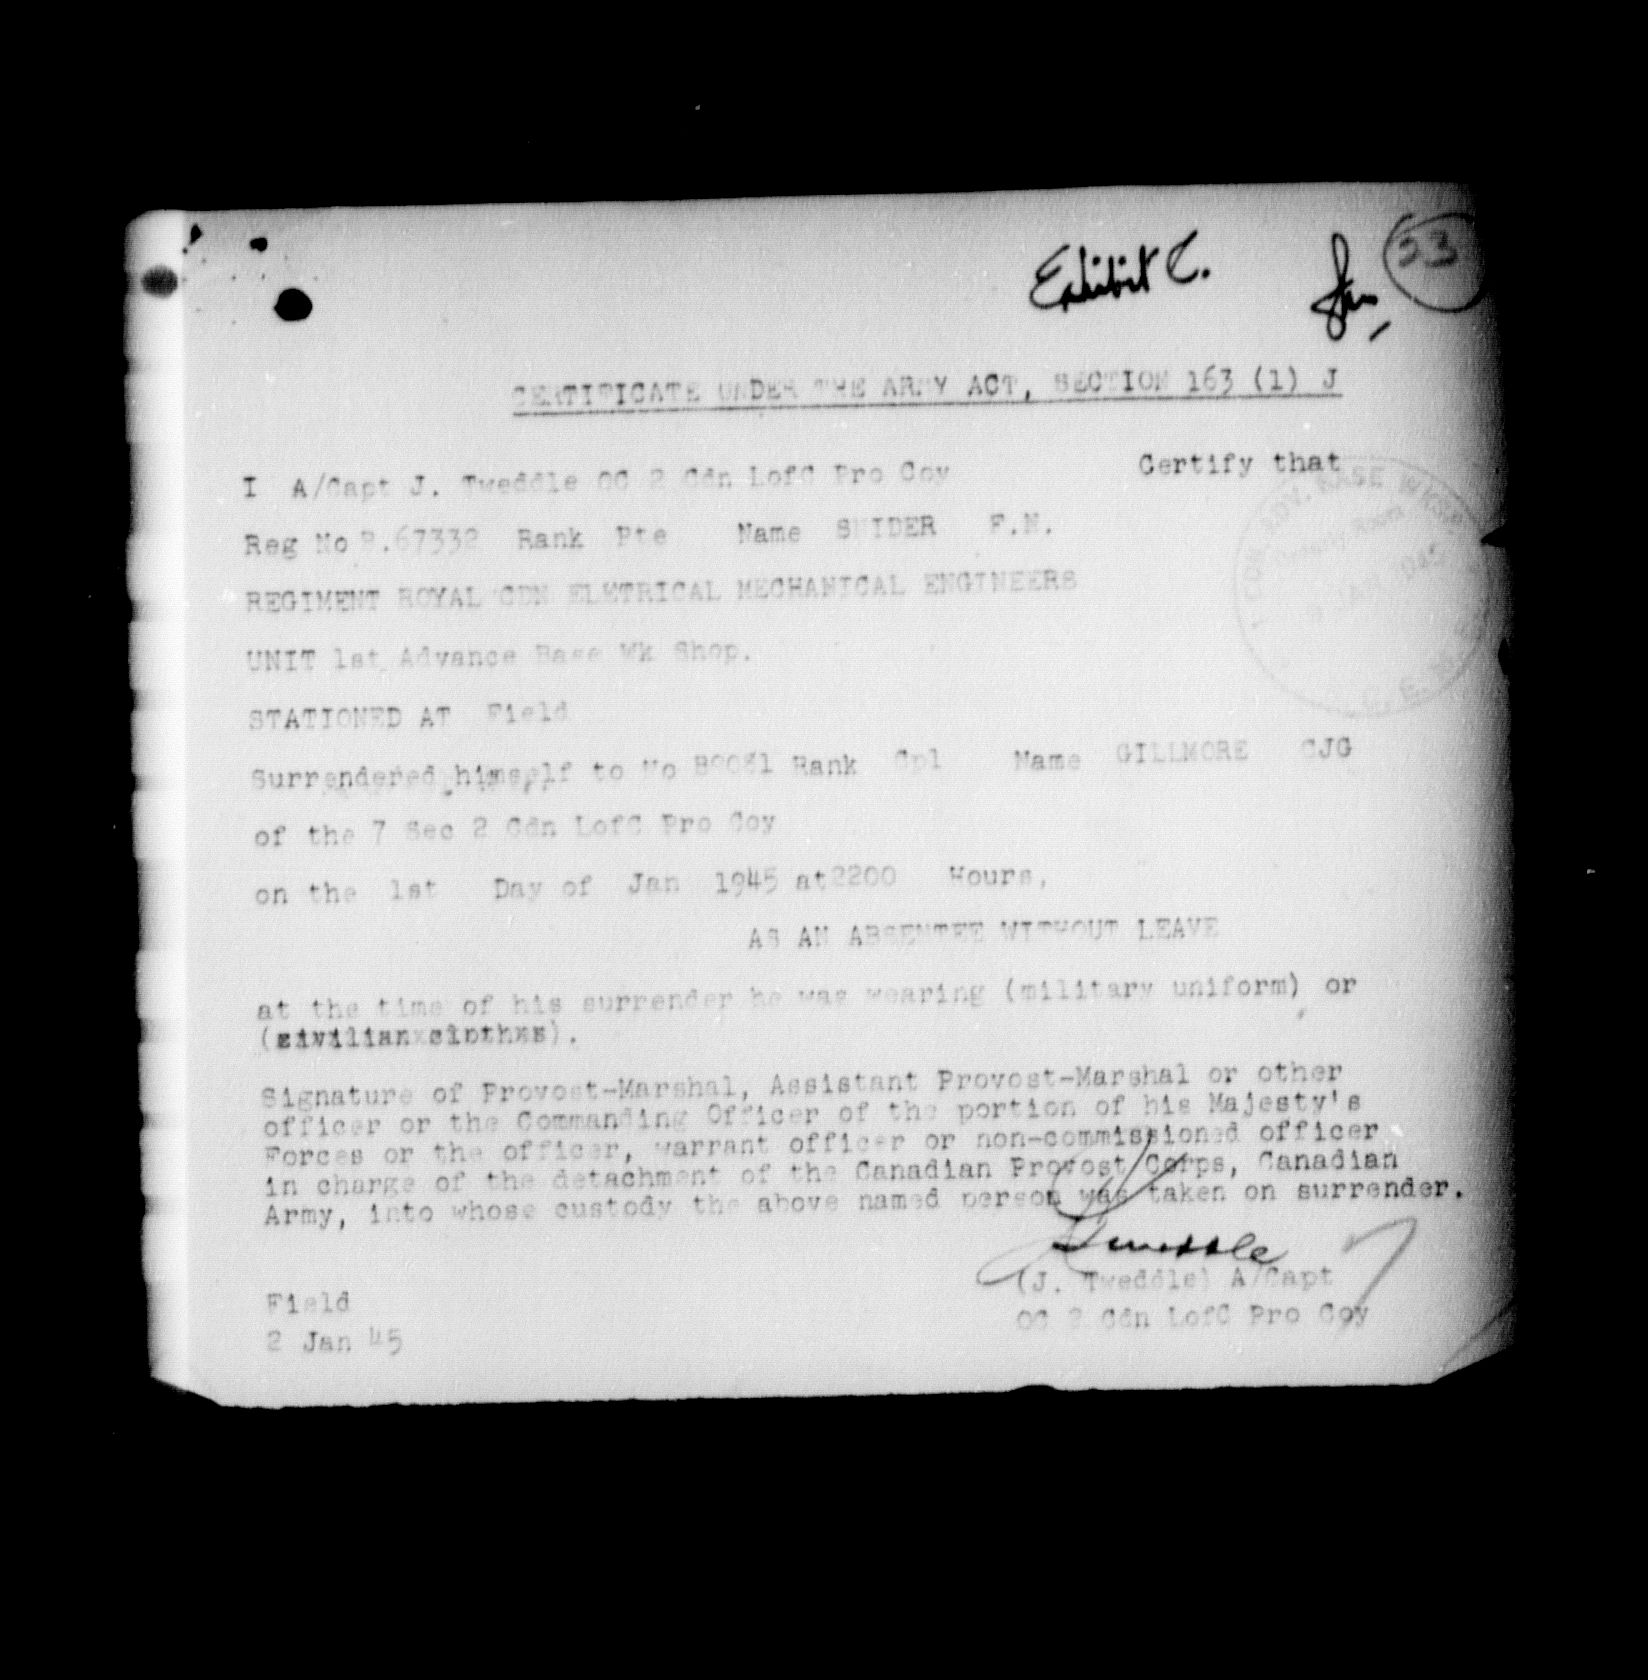 Exhibit C.
53
CERTIFICATE UNDER THE ARMY ACT, SECTION 163 (1) J
I A/Capt J. Tweddle OC 2 Cdn LofC Pro Coy Certify that
Reg No B.67332 Rank Pte Name SNIDER F.N.
REGIMENT ROYAL CDN ELETRICAL MECHANICAL ENGINEERS
UNIT 1st Advance Base Wk Shop.
STATIONED AT Field
Surrendered himself to No Rank Cpl Name GILLMORE CJG
of the 7 Sec 2 Cdn LofC Pro Coy
on the 1st Day of Jan 1945 at 2200 Hours,
AS AN ABSENTEE WITHOUT LEAVE
at the time of his surrender he was wearing (military uniform) or
(civilian clothes).
Signature of Provost-Marshal, Assistant Provost-Marshal or other
officer or the Commanding Officer of the portion of his Majesty's
Forces or the officer, warrant officer or non-commissioned officer
in charge of the detachment of the Canadian Provost Corps, Canadian
Army, into whose custody the above named person was taken on surrender.
Tweddle
(J. Tweddle) A/Capt
OC 2 Cdn LofC Pro Coy
Field
2 Jan 45